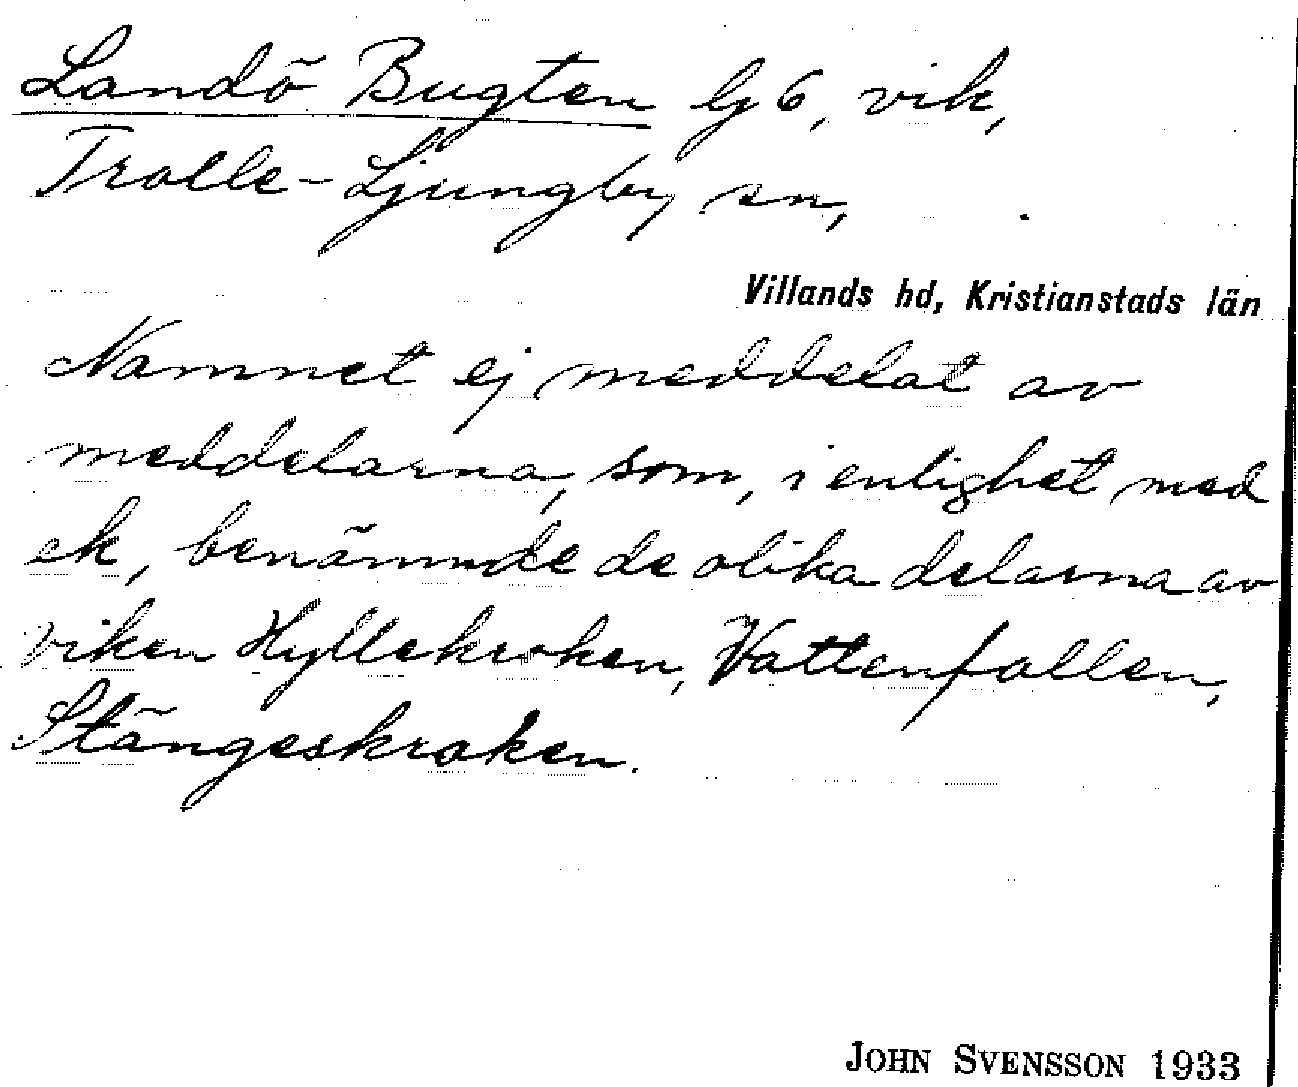 Landö Bugten lj 6, vik,
Trolle-Ljungby sn,
Villands hd, Kristianstads län
Namnet ej meddelat av
meddelarna, som, i enlighet med
ek, benämnde de olika delarna av
viken Hyllekroken, Vattenfallen,
Stångeskroken.
JOHN SVENSSON 1933